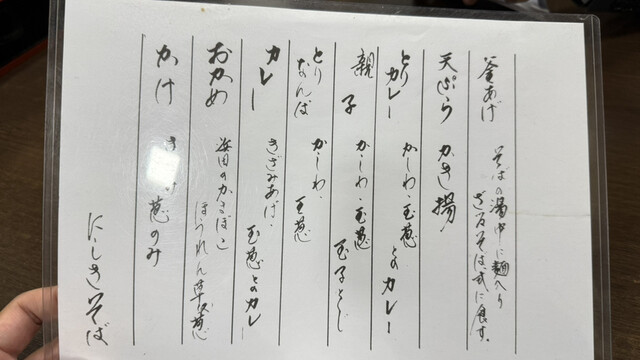 釜あげ そばの湯中に麺入り
ざるそば式に食す。
天ぷら かき揚
とりカレー かしわ・玉葱とのカレー
親子 かしわ・玉葱
玉子とじ
とりなんば かしわ・玉葱
カレー きざみあげ・
玉葱とのカレー
おかめ かまぼこ
ほうれん草
かけ 葱のみ
にしきそば